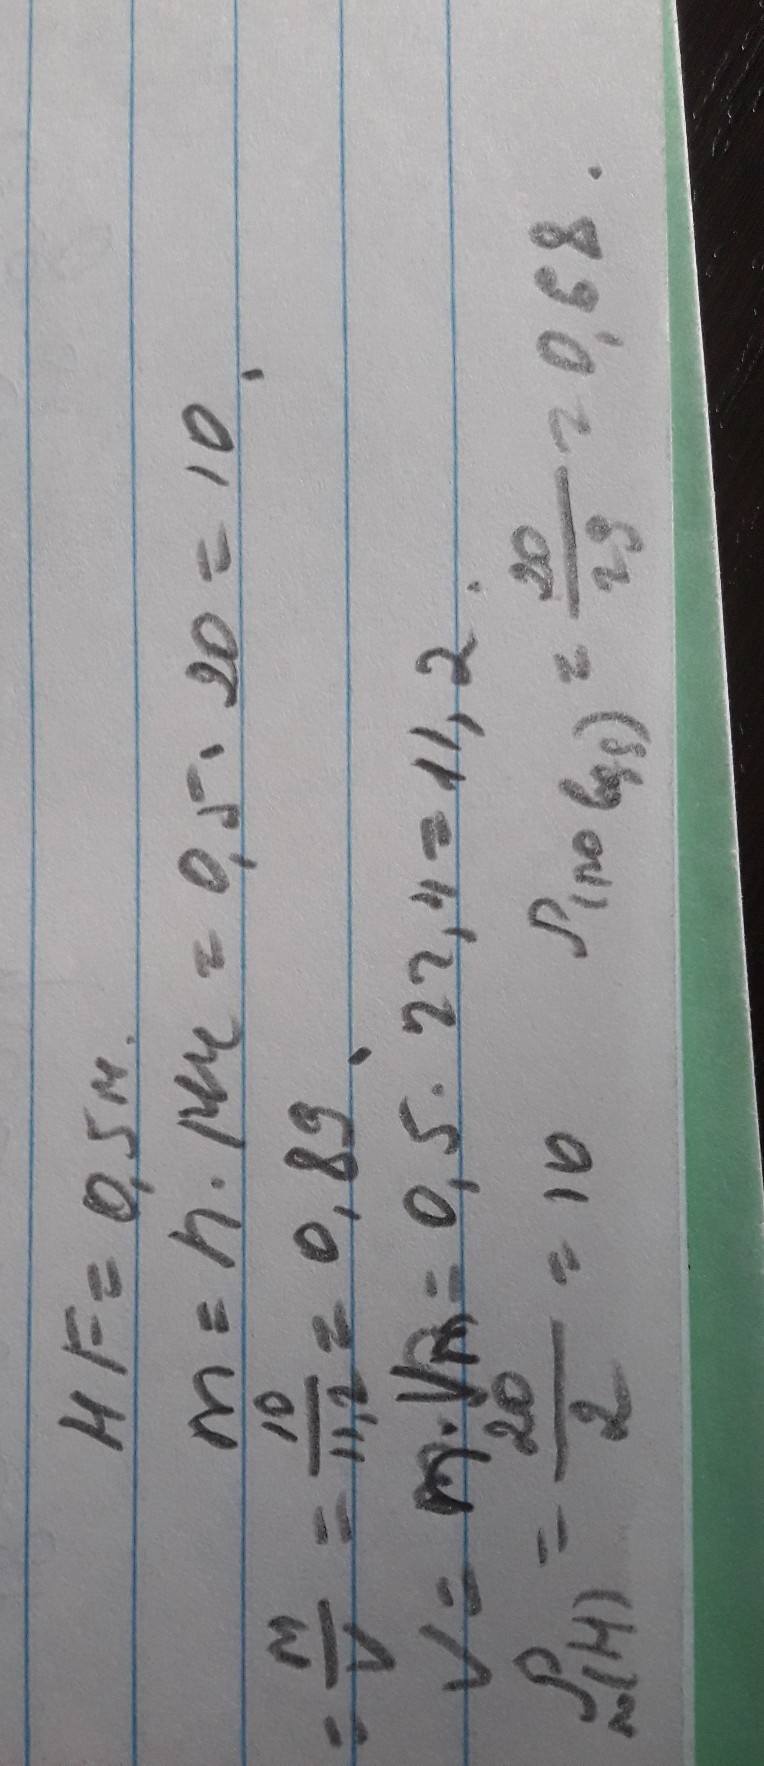 HF = 0,5м.
m = n · Mr = 0,5 · 20 = 10.
= m/V = 10/11,2 = 0,89.
V = n · Vm = 0,5 · 22,4 = 11,2.
ρ по(H) = 20/2 = 10 ρ(по возд) = 20/29 = 0,68.